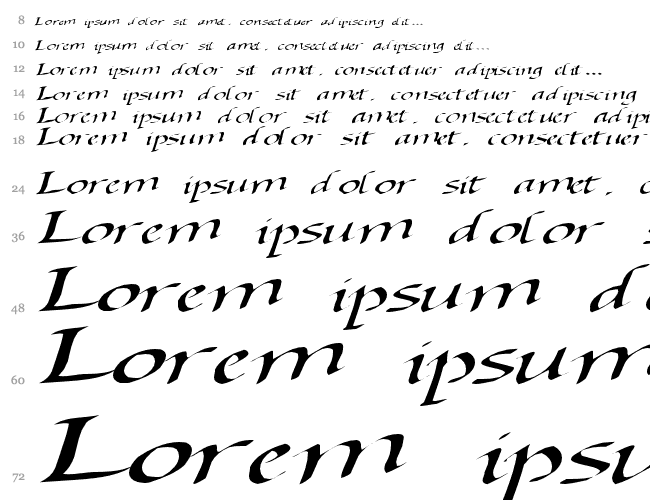 8 Lorem ipsum dolor sit amet, consectetuer adipiscing elit...
10 Lorem ipsum dolor sit amet, consectetuer adipiscing elit...
12 Lorem ipsum dolor sit amet, consectetuer adipiscing elit...
14 Lorem ipsum dolor sit amet, consectetuer adipiscing
16 Lorem ipsum dolor sit amet, consectetuer adipi
18 Lorem ipsum dolor sit amet, consectetuer
24 Lorem ipsum dolor sit amet, c
36 Lorem ipsum dolor s
48 Lorem ipsum d
60 Lorem ipsum
72 Lorem ipsu